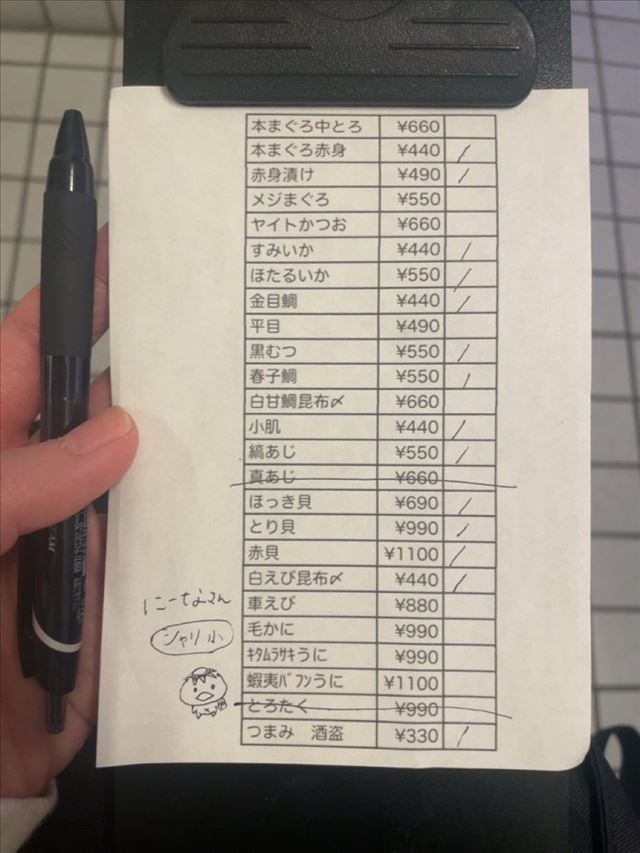 本まぐろ中とろ ¥660
本まぐろ赤身 ¥440 /
赤身漬け ¥490 /
メジまぐろ ¥550
ヤイトかつお ¥660
すみいか ¥440 /
ほたるいか ¥550 /
金目鯛 ¥440 /
平目 ¥490
黒むつ ¥550 /
春子鯛 ¥550 /
白甘鯛昆布〆 ¥660
小肌 ¥440 /
縞あじ ¥550 /
真あじ ¥660
ほっき貝 ¥690 /
とり貝 ¥990 /
赤貝 ¥1100 /
白えび昆布〆 ¥440 /
車えび ¥880
にーなさん
毛かに ¥990
シャリ小
ｷﾀﾑﾗｻｷうに ¥990
蝦夷ﾊﾞﾌﾝうに ¥1100
とろたく ¥990
つまみ 酒盗 ¥330 /